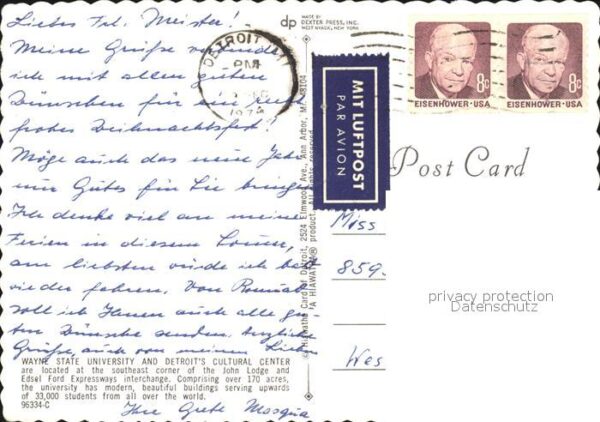 Liebes Frl. Meister!
Meine Grüße
ich mit allen guten
Wünschen für ein recht
frohes Weihnachtsfest!
Möge auch das neue Jahr
nur Gutes für Sie bringen
Ich denke viel an meine
Ferien in diesem Sommer,
am liebsten würde ich bald
wieder fahren. Von
soll ich Ihnen auch alle gu-
ten Wünsche senden. Herzliche
Grüße, auch von meinen Lieben
Ihre Grete
WAYNE STATE UNIVERSITY AND DETROIT'S CULTURAL CENTER
are located at the southeast corner of the John Lodge and
Edsel Ford Expressways interchange. Comprising over 170 acres,
the university has modern, beautiful buildings serving upwards
of 33,000 students from all over the world.
96334-C
dp
MADE BY
DEXTER PRESS, INC.
WEST NYACK, NEW YORK
Hiawatha Card of Detroit, 2524 Elmwood Ave., Ann Arbor, Mi. 48104
"A HIAWATHA® product. All rights reserved.
DETROIT, MI
PM
MIT LUFTPOST
PAR AVION
8c
EISENHOWER·USA
8c
EISENHOWER·USA
Post Card
Miss
859
Wes
privacy protection
Datenschutz